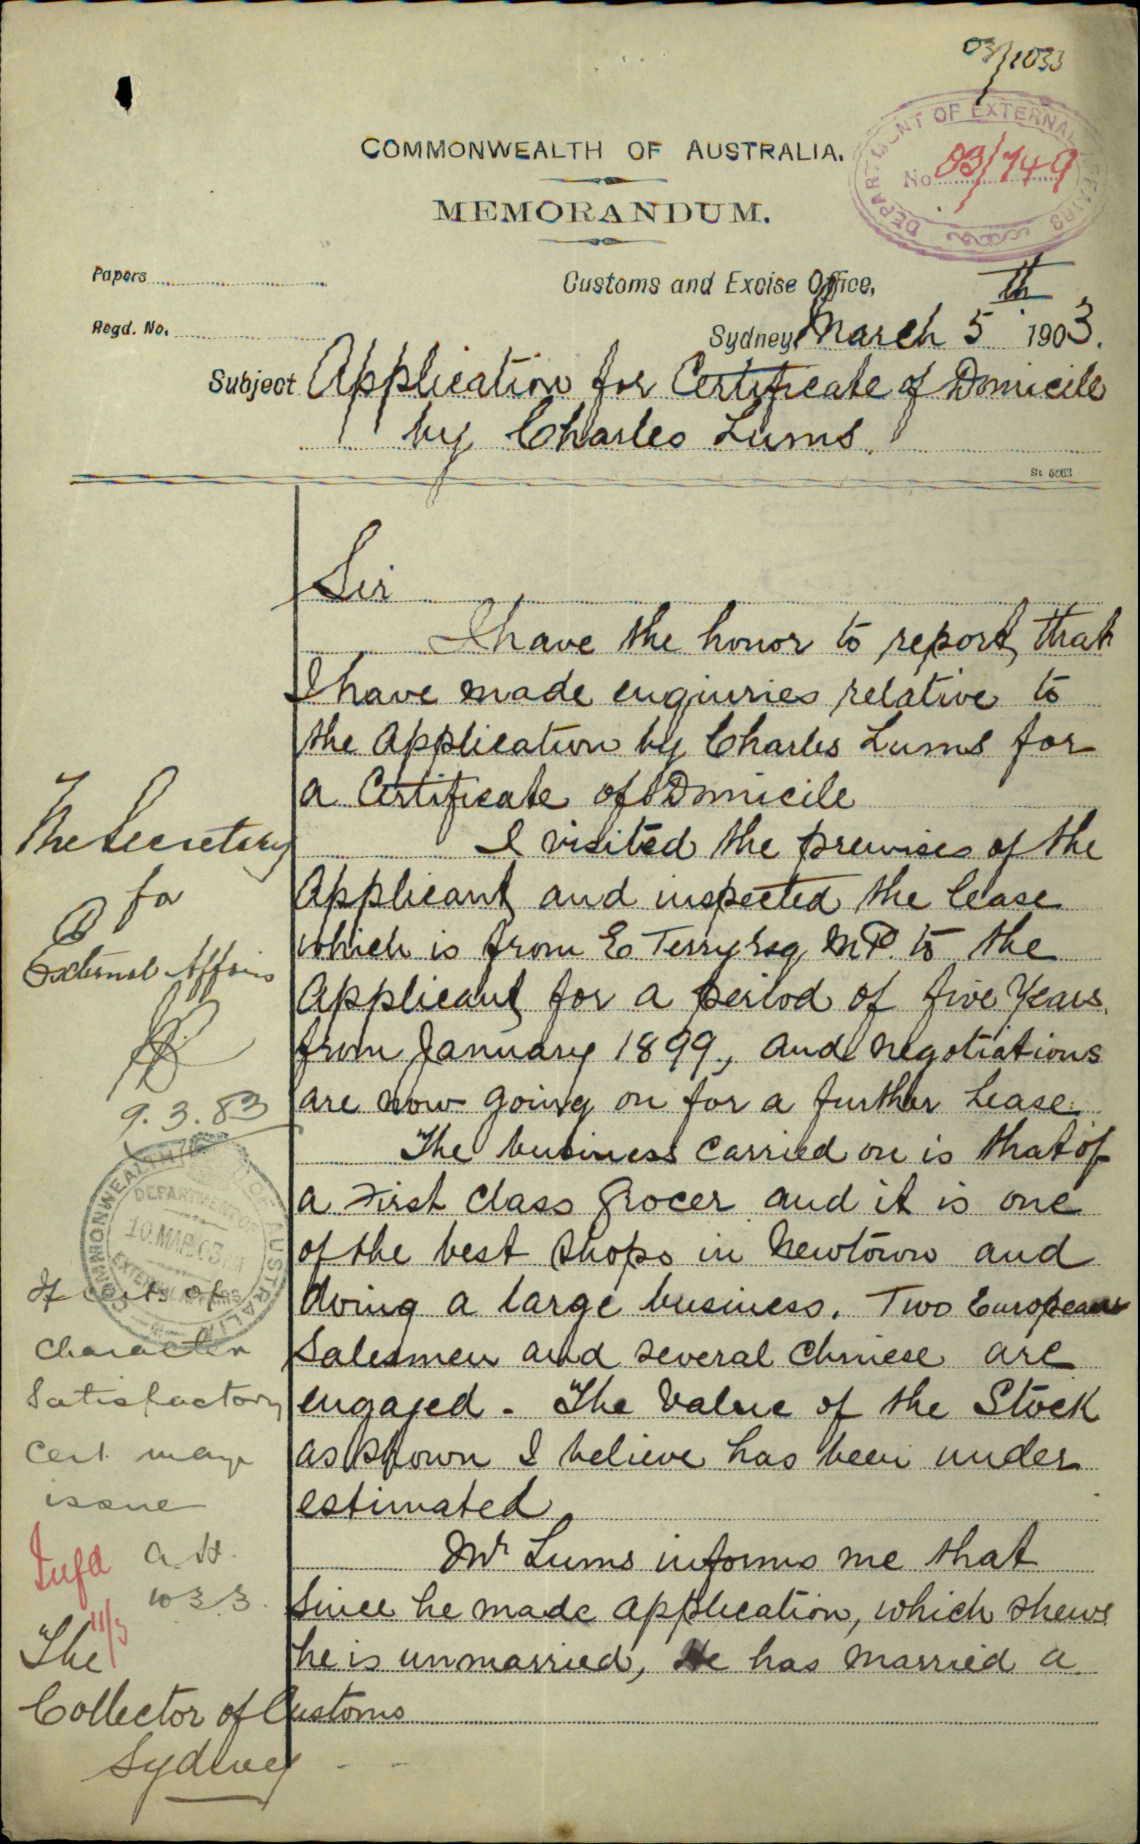 03/1033
COMMONWEALTH OF AUSTRALIA.
DEPARTMENT OF EXTERNAL AFFAIRS
No 03/749
MEMORANDUM.
Papers
Customs and Excise Office,
Regd. No.
Sydney March 5th 1903.
Subject Application for Certificate of Domicile
by Charles Lums.
St. 5063
Sir
I have the honor to report, that
I have made enquiries relative to
the Application by Charles Lums for
a Certificate of Domicile
I visited the premises of the
Applicant, and inspected the lease
which is from E Terry Esq M.P. to the
Applicant, for a period of five Years
from January 1899, and negotiations
are now going on for a further Lease.
The business carried on is that of
a First Class Grocer and it is one
of the best shops in Newtown and
doing a large business. Two European
Salesmen and several Chinese are
engaged. The Value of the Stock
as shown I believe has been under
estimated
Mr Lums informs me that
since he made application, which shews
he is unmarried, He has married a
The Secretary
for
External Affairs
9.3.03
COMMONWEALTH OF AUSTRALIA
DEPARTMENT OF
10.MAR.03
EXTERNAL AFFAIRS
If certs of
character
satisfactory
cert may
issue
A.H.
10 3 3.
Infd
11/3
The
Collector of Customs
Sydney